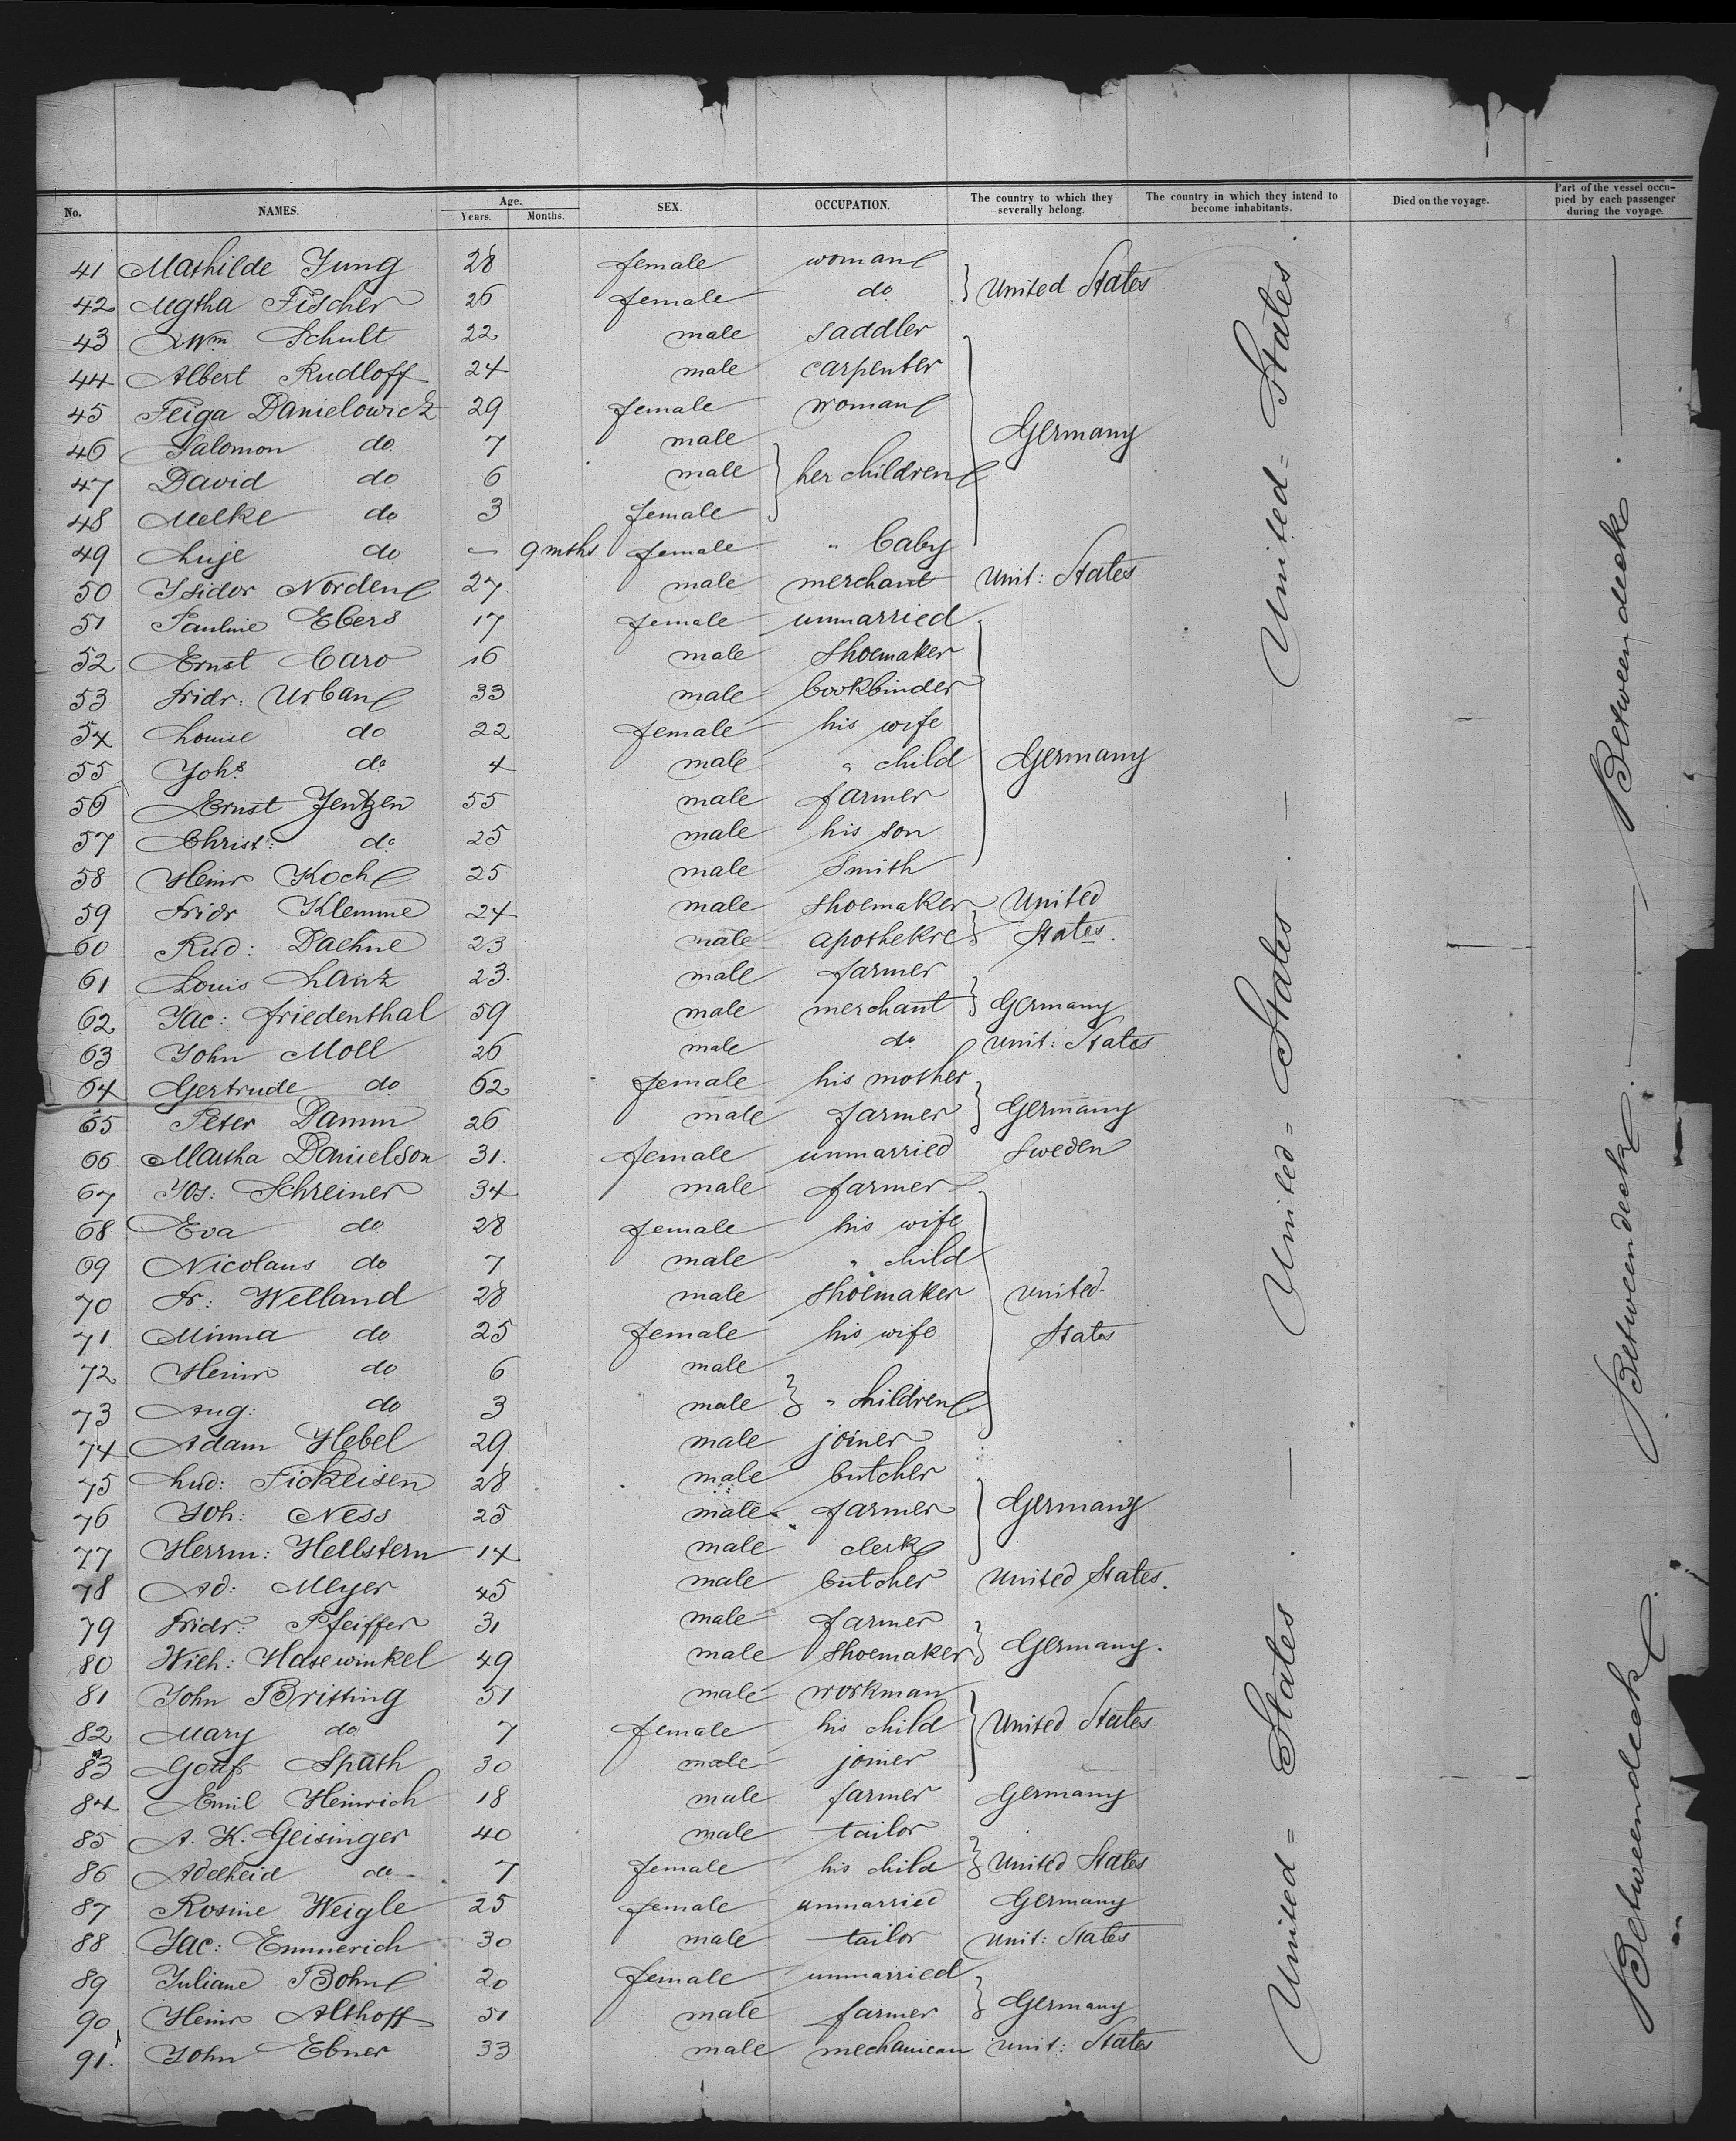 No. NAMES. Age. Years. Months. SEX. OCCUPATION. The country to which they severally belong. The country in which they intend to become inhabitants. Died on the voyage. Part of the vessel occupied by each passenger during the voyage.
41 Mathilde Jung 28 female woman
42 Agtha Fischer 26 female do } United States
43 Wm Schult 22 male saddler
44 Albert Rudloff 24 male carpenter
45 Feiga Danielowicz 29 female woman
46 Salomon do 7 male Germany
47 David do 6 male } her children
48 Melke do 3 female
49 Luje do — 9 mths female " baby
50 Isidor Norden 27 male merchant Unit: States
51 Pauline Ebers 17 female unmarried
52 Ernst Caro 16 male shoemaker
53 Fridr: Urban 33 male bookbinder
54 Louise do 22 female his wife
55 Johs do 4 male " child Germany
56 Ernst Jentzen 55 male farmer
57 Christ: do 25 male his son
58 Heinr Koch 25 male Smith
59 Fridr Klemme 24 male shoemaker United
60 Rud: Daehne 23 male apothekre } States.
61 Louis Lanz 23. male farmer
62 Jac: Friedenthal 59 male merchant } Germany
63 John Moll 26 male do Unit: States
64 Gertrude do 62 female his mother
65 Peter Damm 26 male farmer } Germany
66 Martha Danielson 31. female unmarried Sweden
67 Jos: Schreiner 34 male farmer
68 Eva do 28 female his wife
69 Nicolaus do 7 male " child
70 Fr: Welland 28 male shoemaker United
71 Minna do 25 female his wife States
72 Heinr do 6 male
73 Aug: do 3 male } " children
74 Adam Hebel 29 male joiner
75 Lud: Fickeisen 28 male butcher
76 Joh: Ness 25 male farmer } Germany
77 Herrm: Hellstern 14 male clerk
78 Ad: Meyer 45 male butcher United States.
79 Fridr: Pfeiffer 31 male farmer
80 Wilh: Hasewinkel 49 male shoemaker } Germany.
81 John Britting 51 male workman
82 Mary do 7 female his child } United States
83 Spath 30 male joiner
84 Emil Heinrich 18 male farmer Germany
85 A. K. Geisinger 40 male tailor
86 Adelheid do 7 female his child } United States
87 Rosine Weigle 25 female unmarried Germany
88 Jac: Emmerich 30 male tailor Unit: States
89 Juliane Bohn 20 female unmarried
90 Heinr Althoff 51 male farmer } Germany
91. John Ebner 33 male mechanican Unit: States
United = States . — United = States . — United = States
Betweendeck — Betweendeck . — Betweendeck . —